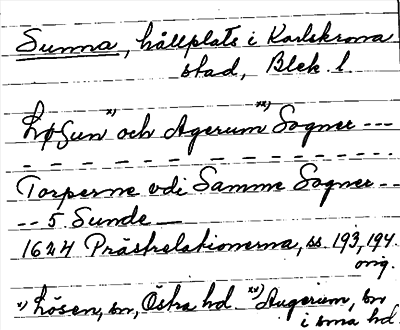 Sunna, hållplats i Karlskrona
stad, Blek. l.
LøSun x) och Agerum xx) Sogner ---
- - - - - - - - - - - - - -
Torperne vdi Samme Sogner --
-- 5 Sunde —
1624 Prästrelationerna, ss. 193, 194.
orig.
x) Lösen, sn, Östra hd. xx) Augerum, sn
i sma hd.